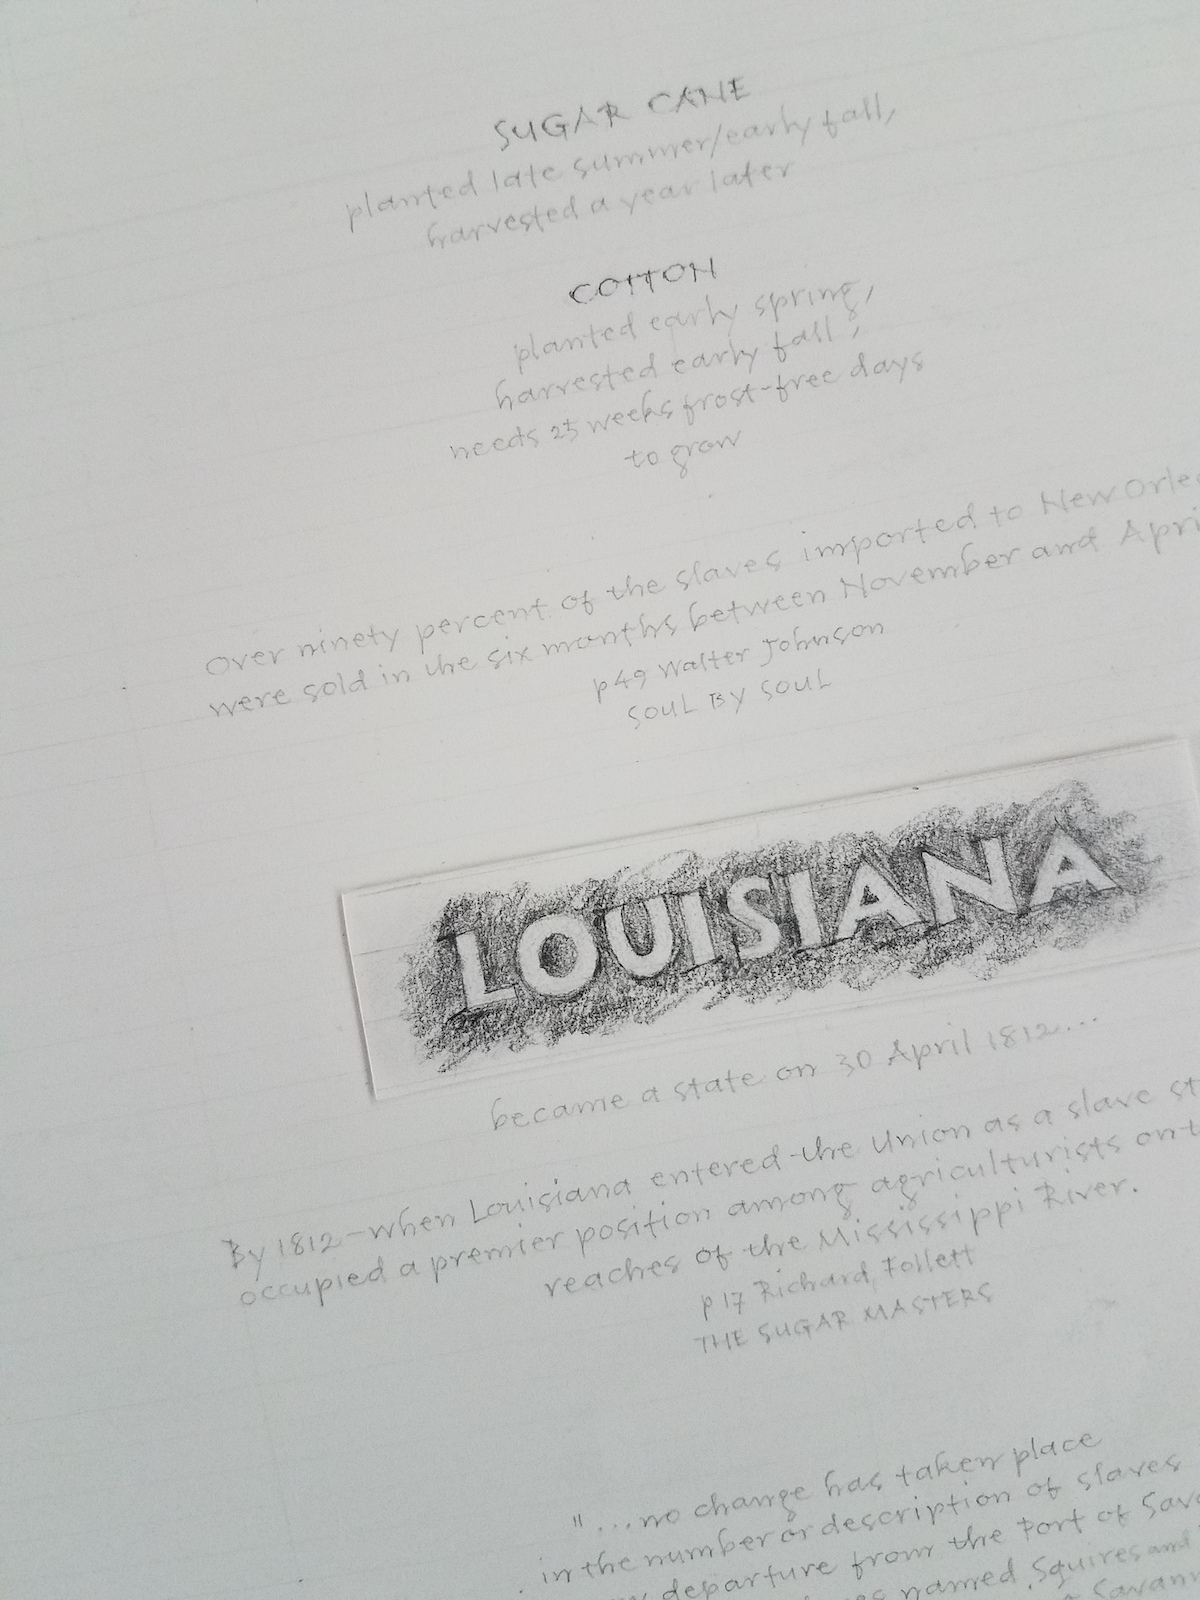 SUGAR CANE
planted late summer/early fall,
harvested a year later
COTTON
planted early spring,
harvested early fall,
needs 25 weeks frost-free days
to grow
Over ninety percent of the slaves imported to New Orle
were sold in the six months between November and Apri
p49 Walter Johnson
SOUL BY SOUL
LOUISIANA
became a state on 30 April 1812...
By 1812-when Louisiana entered the Union as a slave st
occupied a premier position among agriculturists on t
reaches of the Mississippi River.
p17 Richard Follett
THE SUGAR MASTERS
"...no change has taken place
in the number or description of slaves
departure from the Port of Sava
named Squires and
Savann